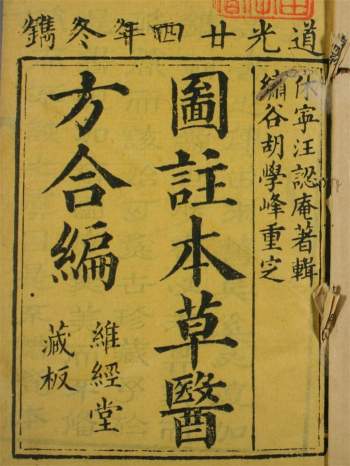 道光廿四年冬鐫
休寧汪認庵著輯
繡谷胡學峰重定
圖註本草醫
方合編
維經堂
藏板